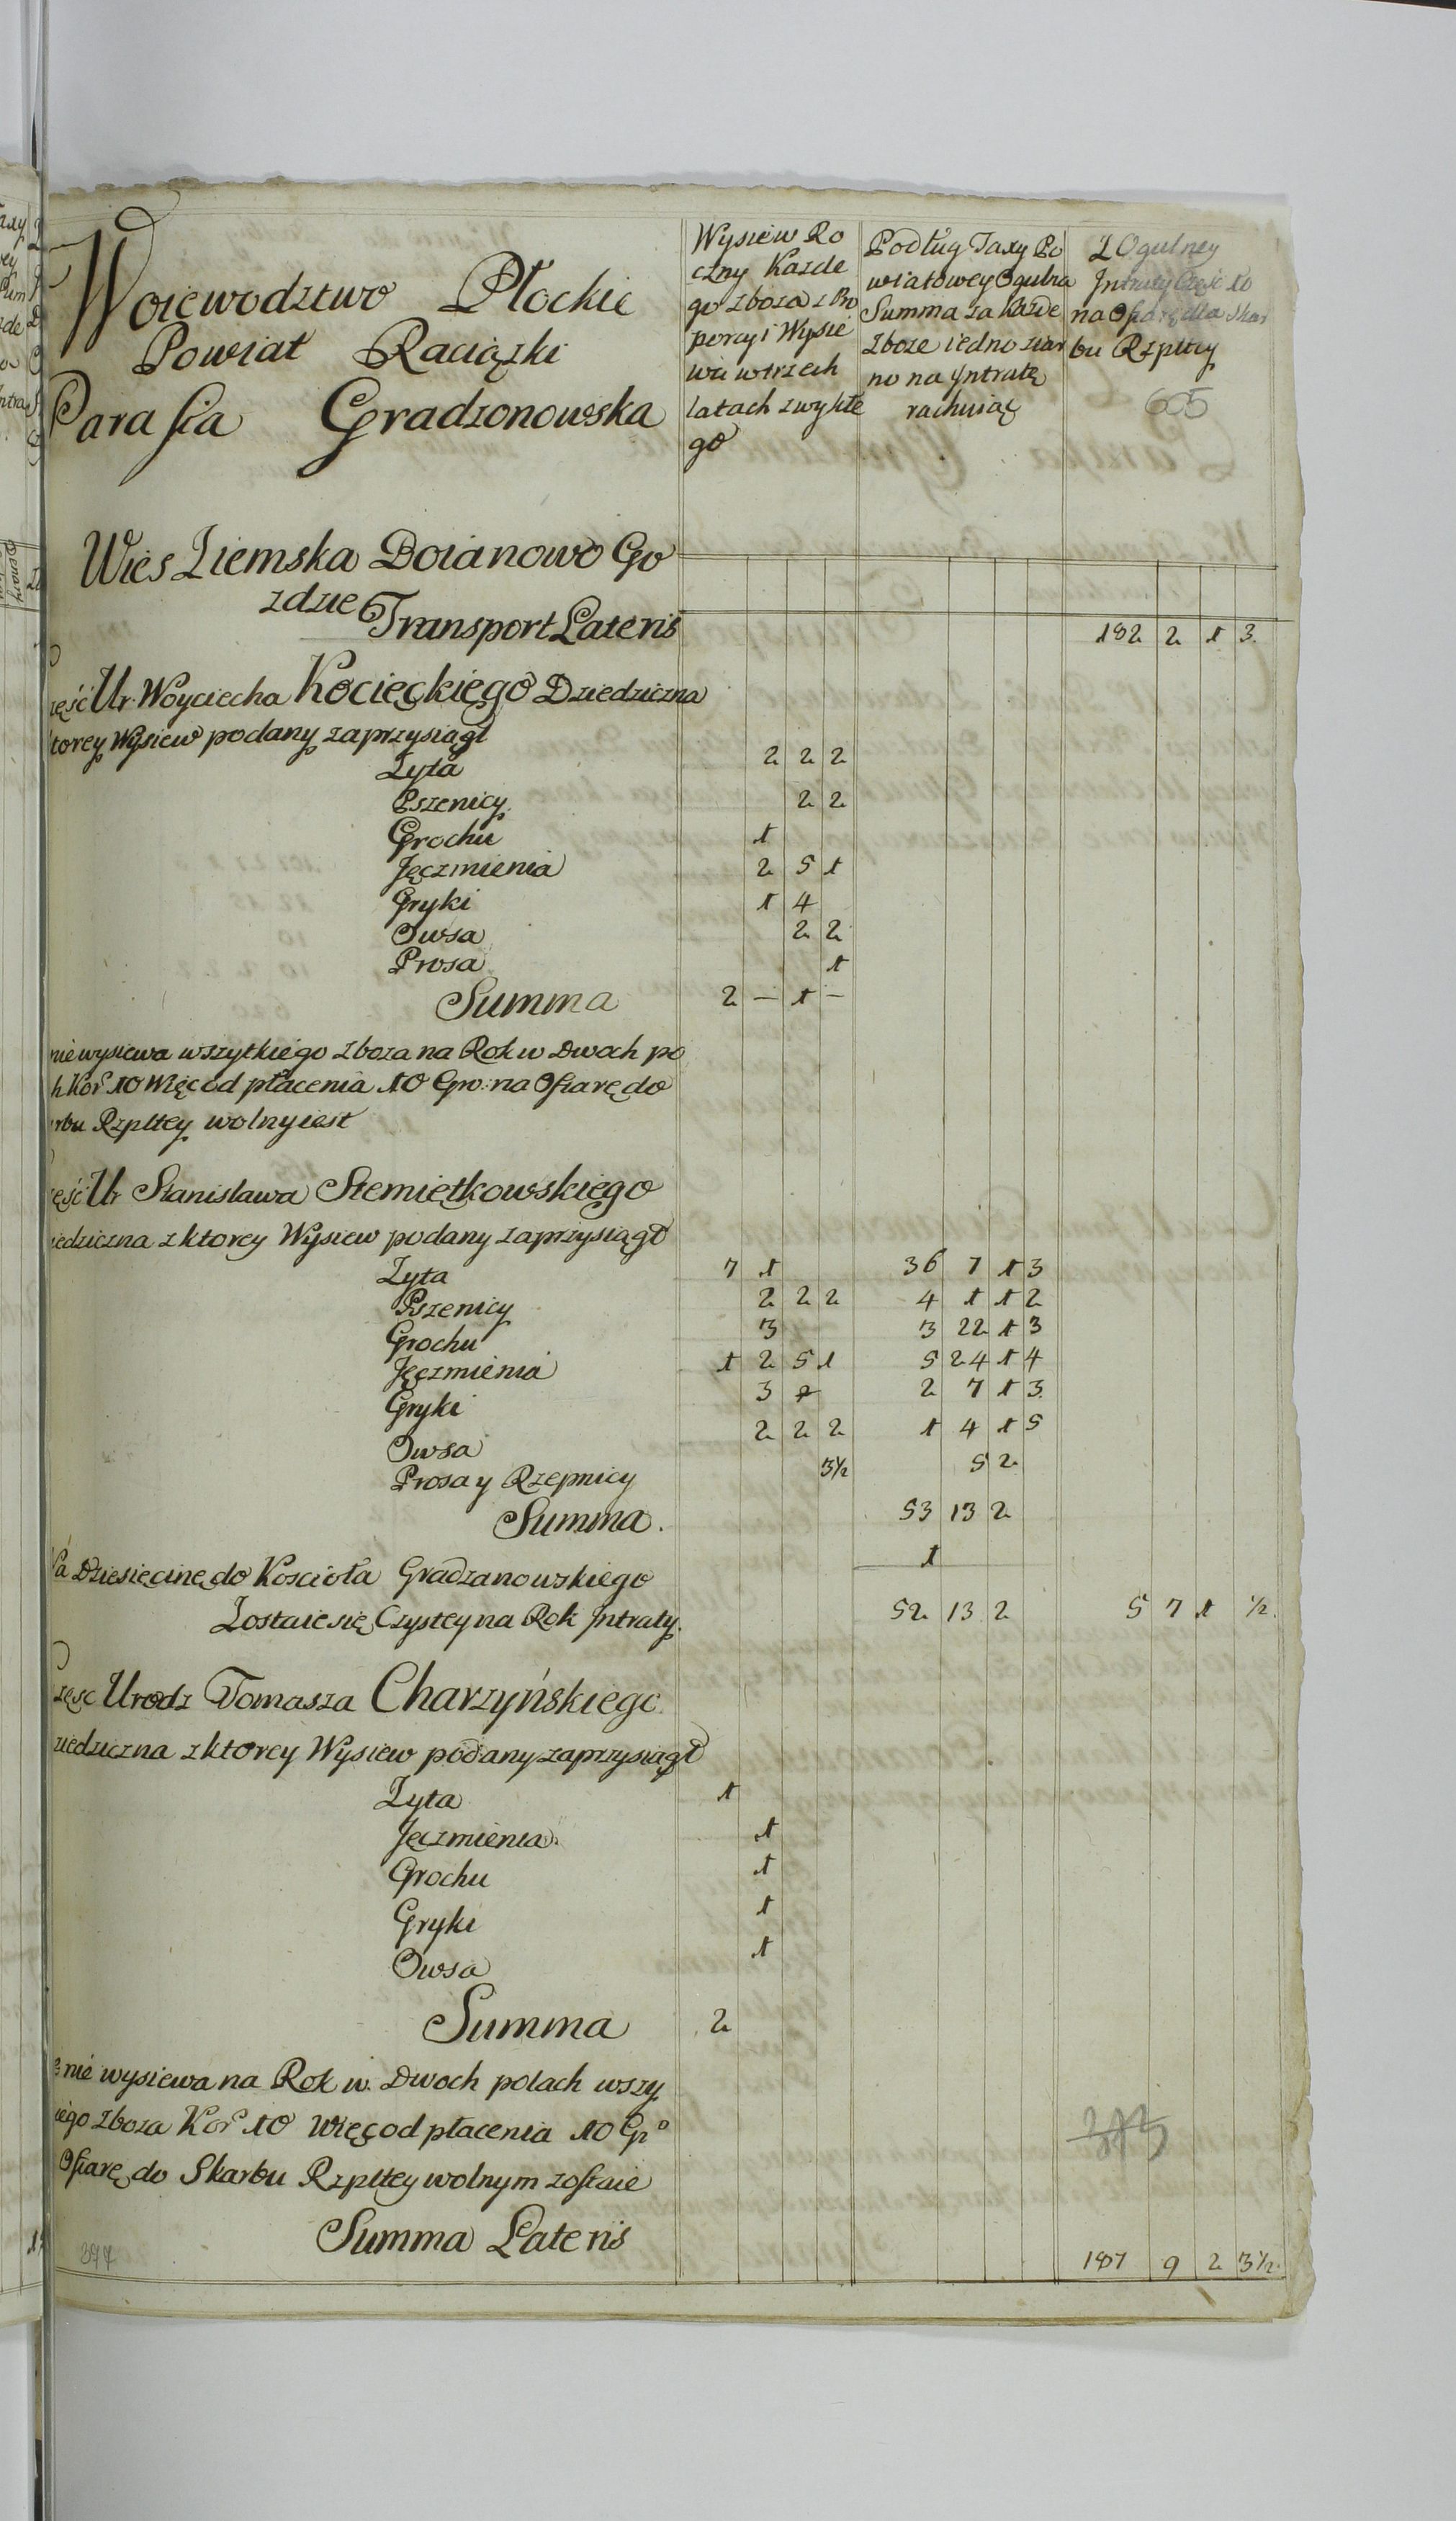 Woiewodztwo Płockie
Powiat Raciązki
Parafia Gradzonowska
Wysiew Ro
czny Kazde
go zboza z Pro
porcyi Wysie
wu wtrzech
latach zwykłe
go
Podług Taxy Po
wiatowey Ogulna
Summa za Kazde
Zboze iedno ziar
no na Jntratę
rachuiąc
Z Ogulney
Jntraty Częsc 10
na Ofiarę dla Skar
bu Rzpltey
605
Wies Ziemska Boianowo Go
zdzie
Transport Lateris 182 2 1 3
zęść Ur. Woyciecha Kocięckiego Dziedziczna
torey Wysiew podany zaprzysiągł
Zyta 2 2 2
Pszenicy 2 2
Grochu 1
Jęczmienia 2 5 1
Gryki 1 4
Owsa 2 2
Prosa 1
Summa 2 — 1 —
nie wysiewa wszytkiego zboza na Rok w Dwoch po
h Kor 10 Więc od płacenia 10 Gro: na Ofiarę do
rbu Rzpltey wolny iest
ęść Ur Stanisława Siemiętkowskiego
iedziczna z ktorey Wysiew podany zaprzysiągł
Zyta 7 1 36 7 1 3
Pszenicy 2 2 2 4 1 1 2
Grochu 3 3 22 1 3
Jęczmienia 1 2 5 1 5 24 1 4
Gryki 3 2 7 1 3
Owsa 2 2 2 1 4 1 5
Prosa y Rzepnicy 3½ 5 2
Summa. 53 13 2
Na Dziesięcinę do Koscioła Gradzanowskiego 1
Zostaie się Czystey na Rok Jntraty. 52 13 2 5 7 1 ½.
zęsc Urodz Tomasza Charzyńskiego
ziedziczna z ktorey Wysiew podany zaprzysiągł
Zyta 1
Jęczmienia 1
Grochu 1
Gryki 1
Owsa 1
Summa 2
nie wysiewa na Rok w. Dwoch polach wszy
iego zboza Kor 10 Więc od płacenia 10 Gro
Ofiarę do Skarbu Rzpltey wolnym zostaie
Summa Lateris 187 9 2 3½.